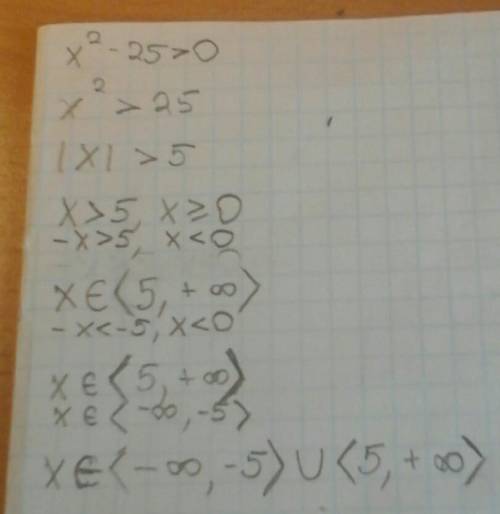 x² - 25 > 0
x² > 25
|x| > 5
x > 5, x ≥ 0
-x > 5, x < 0
x ∈ ⟨5, +∞⟩
-x < -5, x < 0
x ∈ ⟨5, +∞⟩
x ∈ ⟨-∞, -5⟩
x ∈ ⟨-∞, -5⟩ ∪ ⟨5, +∞⟩